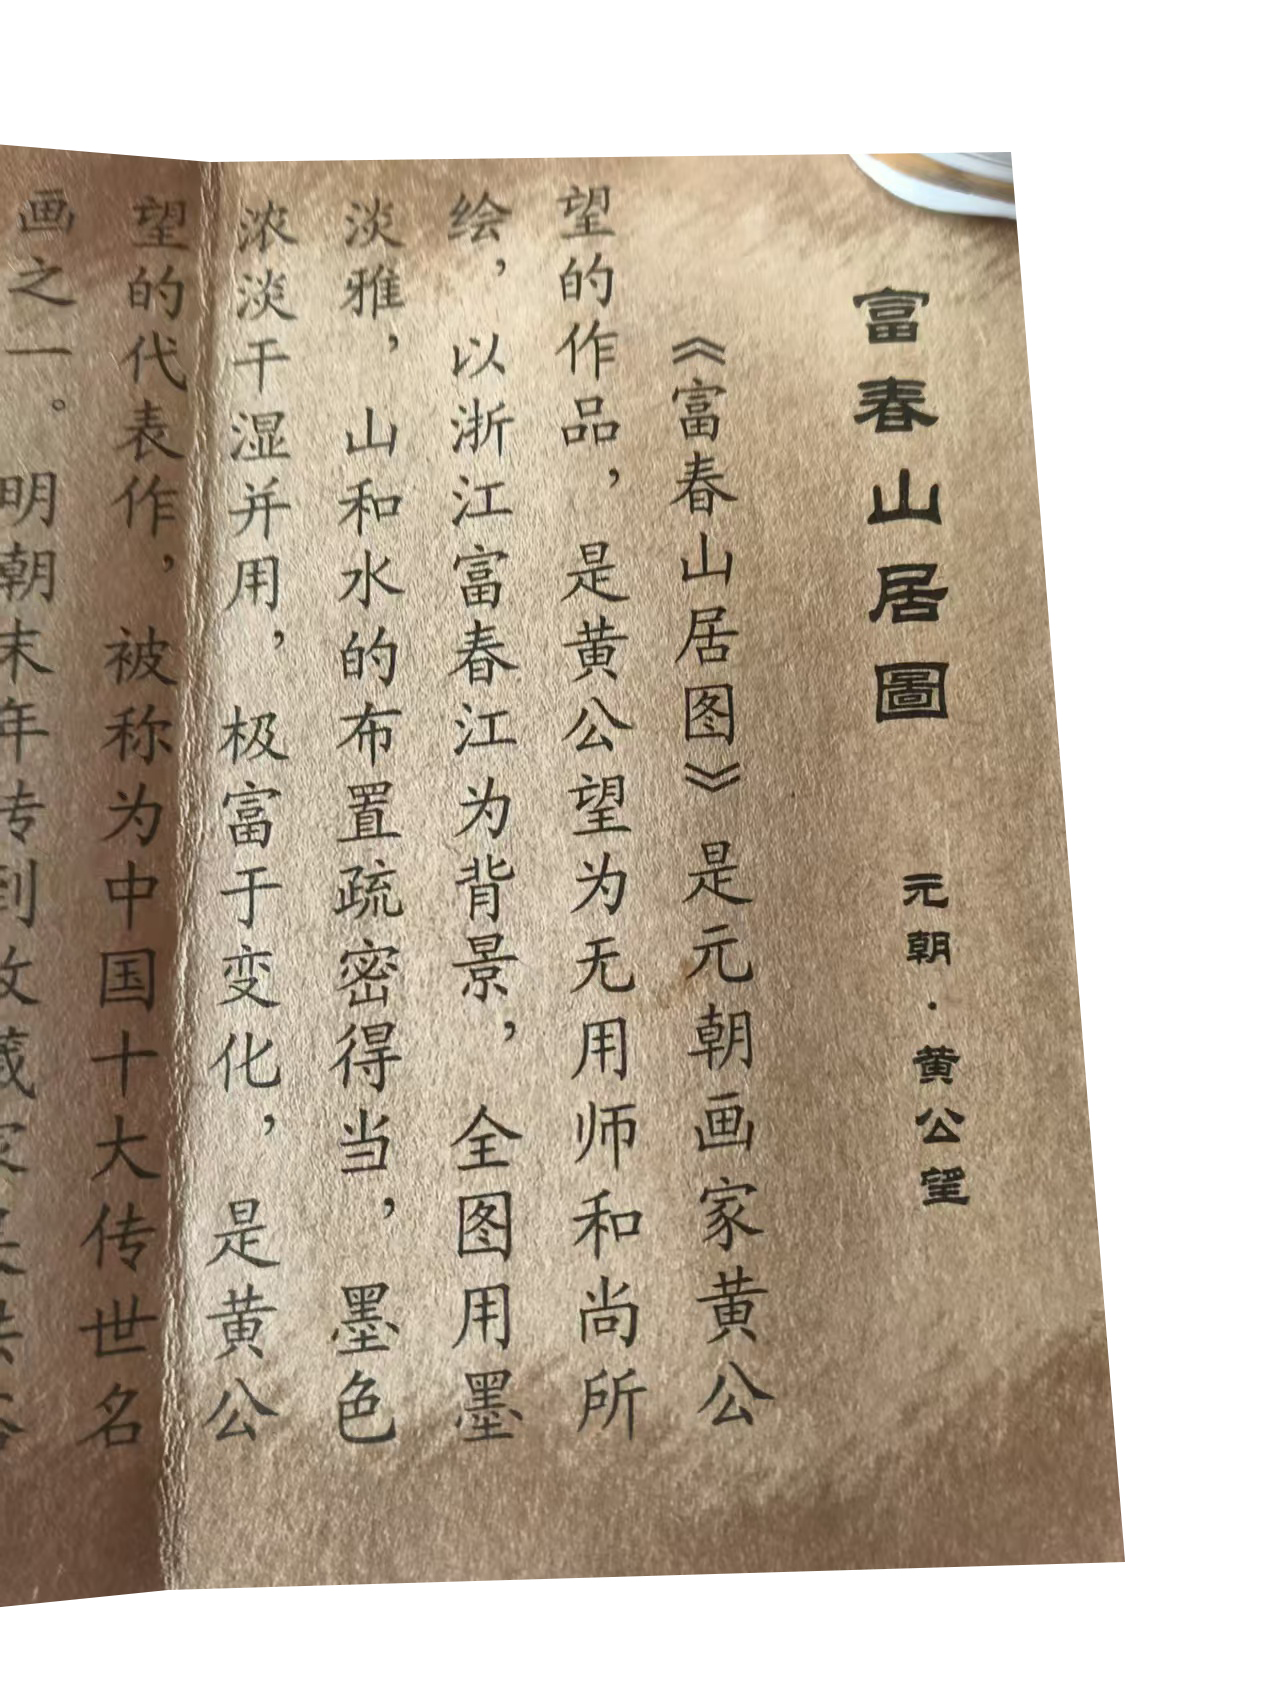 富春山居圖 元朝·黄公望
《富春山居图》是元朝画家黄公
望的作品，是黄公望为无用师和尚所
绘，以浙江富春江为背景，全图用墨
淡雅，山和水的布置疏密得当，墨色
浓淡干湿并用，极富于变化，是黄公
望的代表作，被称为中国十大传世名
画之一。明朝末年传到收藏家吴洪裕